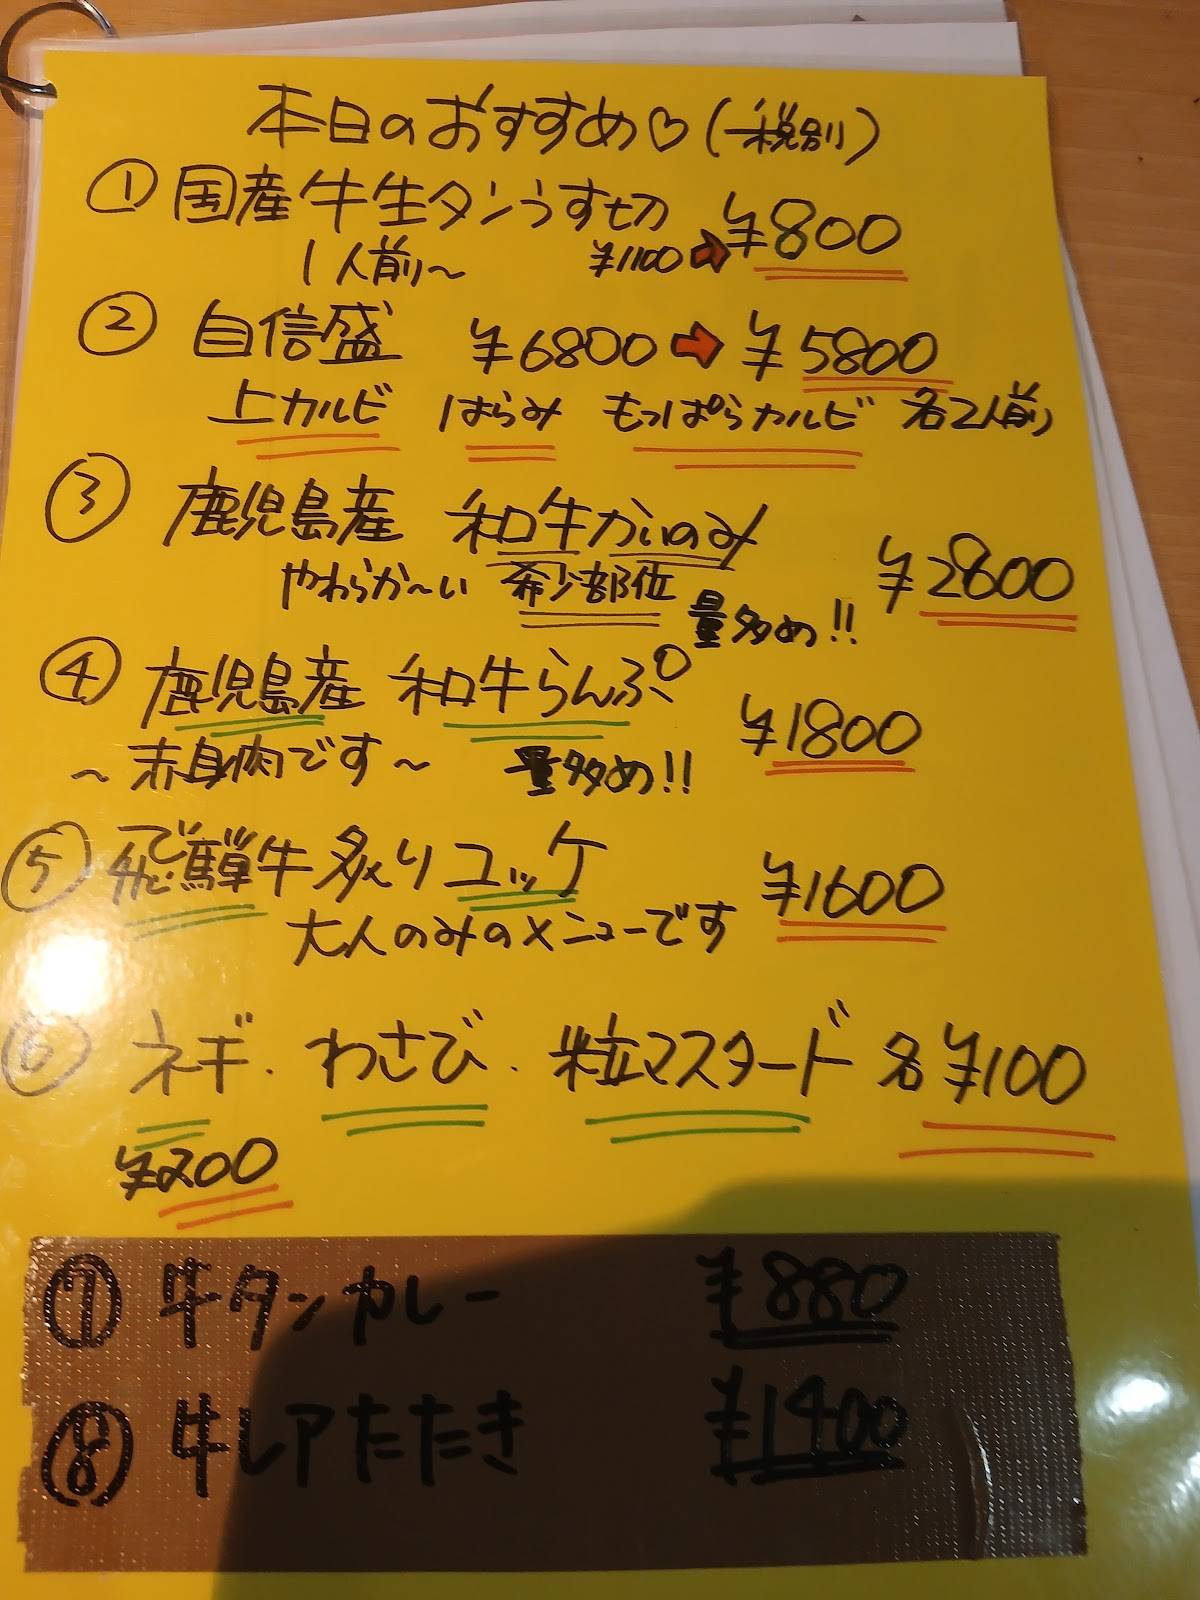 本日のおすすめ♡(税別)
① 国産牛生タンうす切 ¥800
1人前〜 ¥1100➡
② 自信盛 ¥6800➡¥5800
上カルビ はらみ もっぱらカルビ 各2人前
③ 鹿児島産 和牛かいのみ ¥2800
やわらか〜い 希少部位 量多め!!
④ 鹿児島産 和牛らんぷ ¥1800
〜赤身肉です〜 量多め!!
⑤ 飛騨牛炙りユッケ ¥1600
大人のみのメニューです
⑥ ネギ.わさび.粒マスタード 各¥100
¥200
⑦ 牛タンカレー ¥880
⑧ 牛レアたたき ¥1400